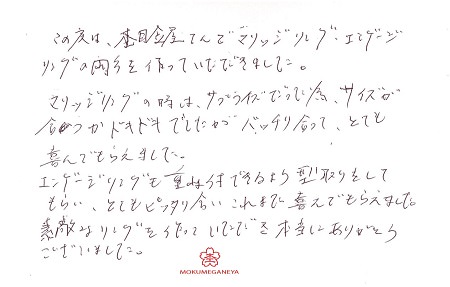 この度は、杢目金屋さんでマリッジリング、エンゲージ
リングの両方を作っていただきました。
マリッジリングの時は、サプライズだった為、サイズが
合うかドキドキでしたがバッチリ合って、とても
喜んでもらえました。
エンゲージリングも重ね付できるよう型取りをして
もらい、とてもピッタリ合いこれまた喜んでもらえました。
素敵なリングを作っていただき本当にありがとう
ございました。
MOKUMEGANEYA